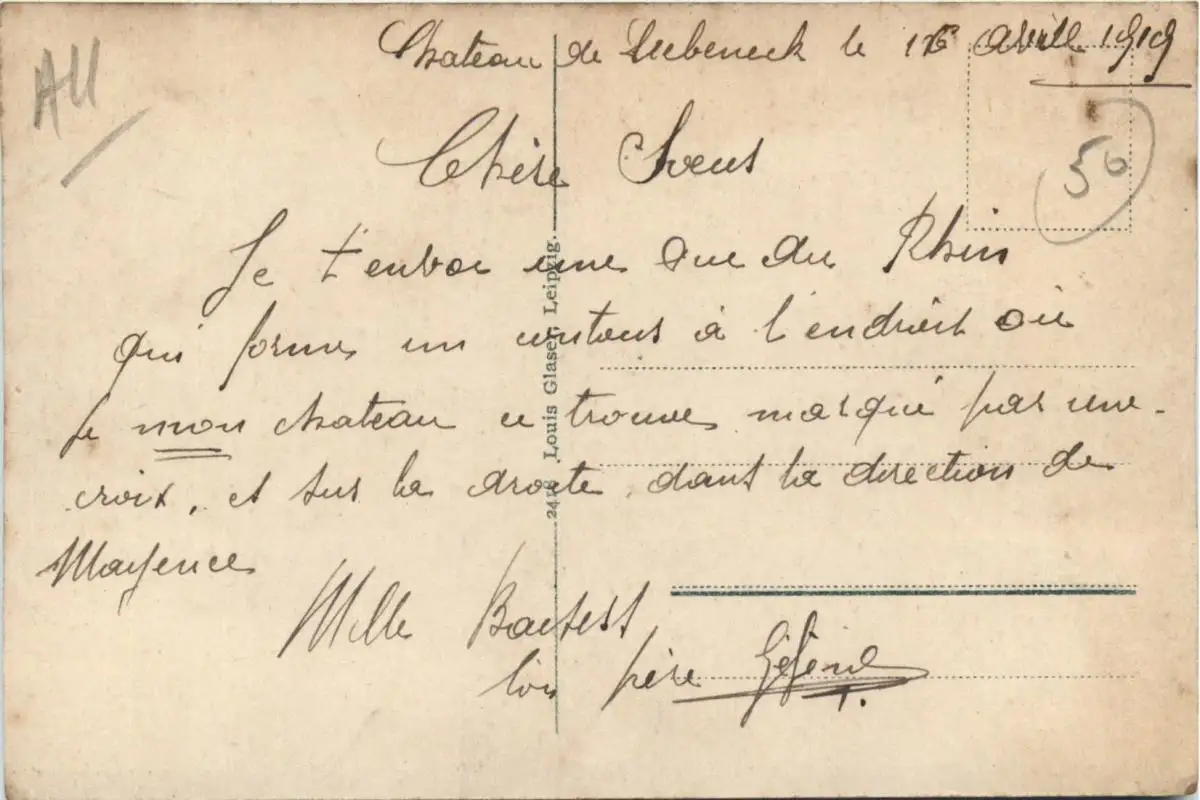 Chateau de Liebeneck le 16 Avril 1919
All
50
Chère Soeus
Je t'envoi une vue du Rhin
qui forme un contous à l'endroit où
le mon chateau ce trouve marqué par une
croix, et sur la droite, dans la direction de
Mayence
Mille Baisers
ton père
2418 Louis Glaser, Leipzig.